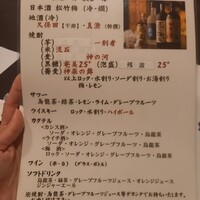 日本酒 松竹梅(冷・燗)
地酒(冷)
久保田
焼酎
(芋) 一刻者
(米) 流石
(麦) 神の河
(黒糖) 奄美25° (泡盛) 残波 25°
(蕎麦) 神楽の舞
ロック・水割り・ソーダ割り・お湯割り
梅・レモン
サワー
烏龍茶・緑茶・レモン・ライム・グレープフルーツ
ウイスキー ロック・水割り・ハイボール
カクテル
<カシス酒>
ソーダ・オレンジ・グレープフルーツ・烏龍茶
<ライチ酒>
ソーダ・オレンジ・グレープフルーツ・烏龍茶
<梅酒>
ロック・水割り・ソーダ割り
ワイン (赤・白)
ソフトドリンク
烏龍茶・緑茶・グレープフルーツジュース・オレンジジュース
ジンジャーエール